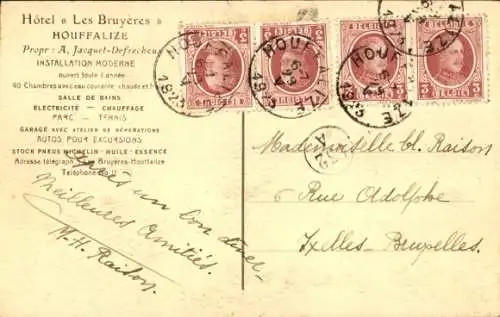 Hôtel « Les Bruyères »
HOUFFALIZE
Propr : A. Jacquet-Defrecheux
INSTALLATION MODERNE
ouvert toute l'année
40 Chambres avec eau courante chaude et fr
SALLE DE BAINS
ELECTRICITÉ - CHAUFFAGE
PARC - TENNIS
GARAGE AVEC ATELIER DE RÉPARATIONS
AUTOS POUR EXCURSIONS
STOCK PNEUS MICHELIN - HUILE - ESSENCE
Adresse télégraph. Les Bruyères-Houffalize
Téléphone No 11
Après un bon dîner
Meilleures amitiés.
M-H. Raison.
BELGIE
BELGIQUE
3 BELGIE 3
3 BELGIE 3
HOUFFALIZE
1925
HOUFFALIZE
1925
HOUFFALIZE
1925
Mademoiselle bl. Raison
6 Rue Adolphe
Ixelles-Bruxelles.